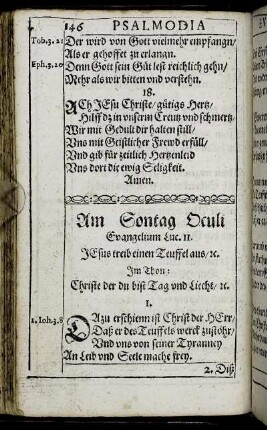 146 PSALMODIA
Tob.3.21 Der wird von Gott vielmehr empfangn/
Als er gehoffet zu erlangn.
Eph.3.20 Denn Gott sein Güt lest reichlich gehn/
Mehr als wir bitten vnd verstehn.
18.
ACh JEsu Christe/ gütigs Hertz/
Hilff dz in vnserm Creutz vnd schmertz
Wir mit Gedult dir halten still/
Vns mit Geistlicher Frewd erfüll/
Vnd gib für zeitlich Hertzenleid
Vns dort die ewig Seligkeit.
Amen.
Am Sontag Oculi
Evangelium Luc. 11.
JEsus treib einen Teuffel aus/ ꝛc.
Im Thon:
Christe der du bist Tag vnd Liecht/ ꝛc.
1.
1.Joh.3.8 DAzu erschienn ist Christ der HErr/
Daß er des Teuffels werck zustöhr/
Vnd vns von seiner Tyranney
An Leib vnd Seele mache frey.
2. Diß